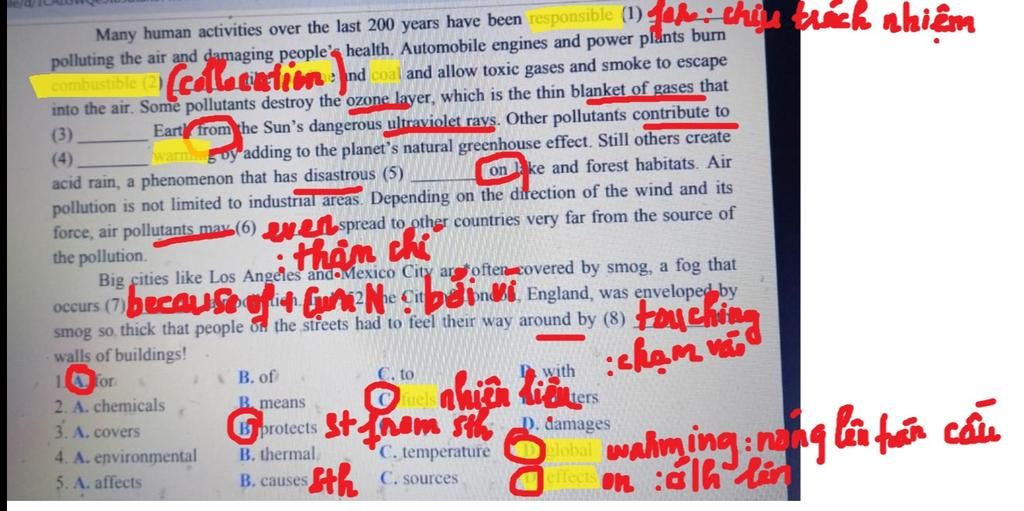 Many human activities over the last 200 years have been responsible (1) for : chịu trách nhiệm
polluting the air and damaging people's health. Automobile engines and power plants burn
combustible (2) (collocation) and coal and allow toxic gases and smoke to escape
into the air. Some pollutants destroy the ozone layer, which is the thin blanket of gases that
(3) ______ Earth from the Sun's dangerous ultraviolet rays. Other pollutants contribute to
(4) ______ warming by adding to the planet's natural greenhouse effect. Still others create
acid rain, a phenomenon that has disastrous (5) ______ on lake and forest habitats. Air
pollution is not limited to industrial areas. Depending on the direction of the wind and its
force, air pollutants may (6) even spread to other countries very far from the source of
the pollution. : thậm chí
Big cities like Los Angeles and Mexico City are often covered by smog, a fog that
occurs (7) because of + cụm N : bởi vì England, was enveloped by
smog so thick that people on the streets had to feel their way around by (8) touching
walls of buildings! : chạm vào
1. A. for B. of C. to D. with
2. A. chemicals B. means C. fuels nhiên liệu
3. A. covers B. protects st from sth D. damages
4. A. environmental B. thermal C. temperature D. global warming : nóng lên toàn cầu
5. A. affects B. causes sth C. sources D. effects on : a/h lên